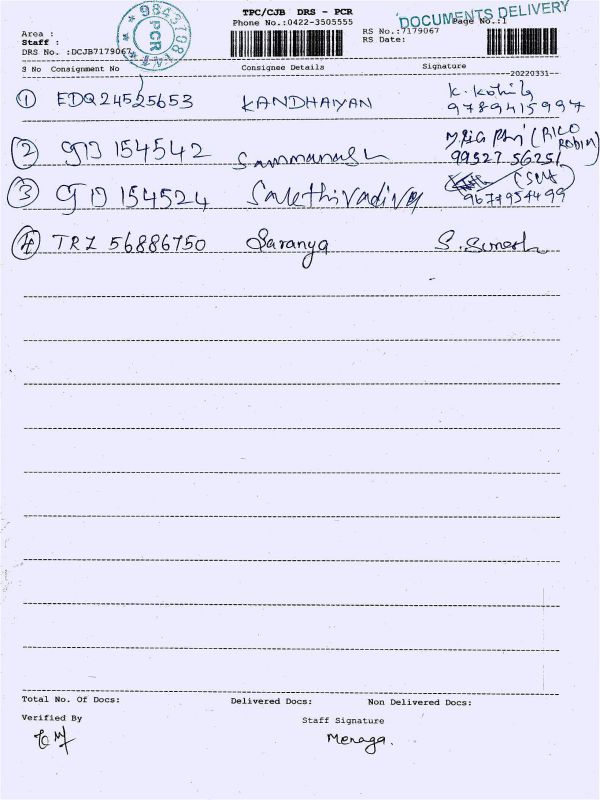 TPC/CJB DRS - PCR
Phone No.:0422-3505555
DOCUMENTS DELIVERY
Page No.:1
RS No.:7179067
RS Date:
Area :
Staff :
DRS No. :DCJB7179067
PCR
S No Consignment No Consignee Details Signature
20220331
1 EDQ24525653 KANDHAIYAN K. Kokila
9789415997
2 GTD 154542
99527 56251
3 GTD 154524 Sakthivadivel
9677954499
4 TRZ 56886750 Saranya S. Suresh
Total No. Of Docs: Delivered Docs: Non Delivered Docs:
Verified By Staff Signature
Menaga.